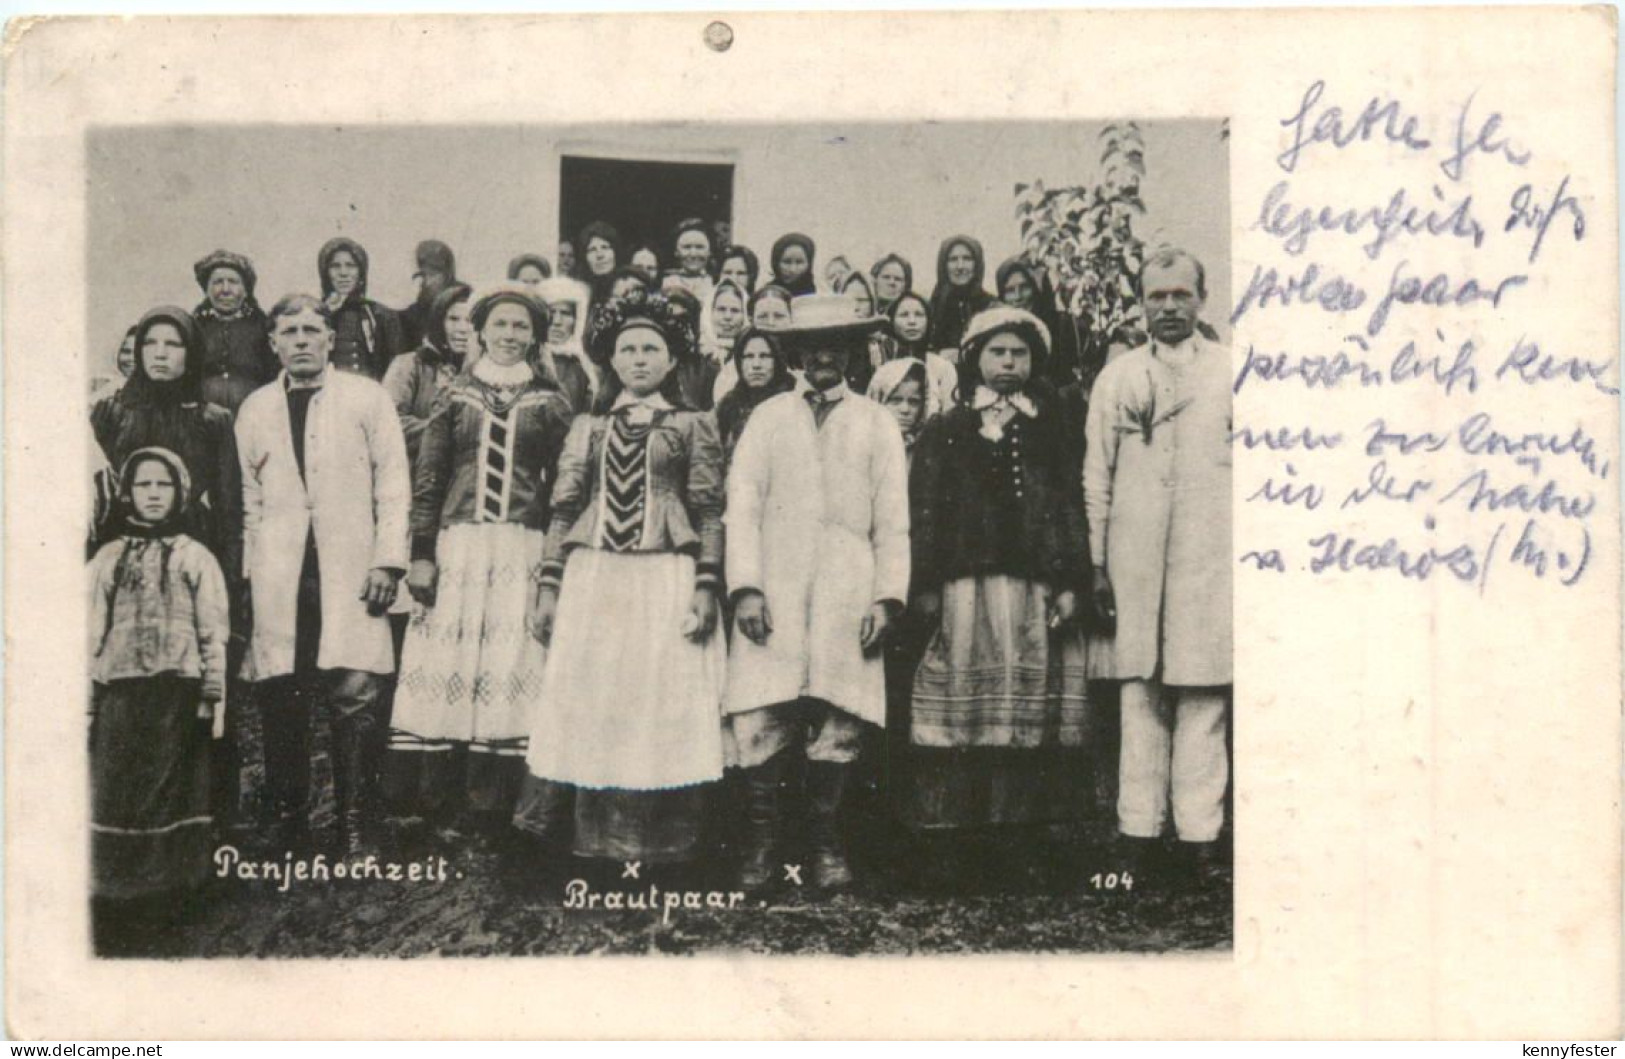 Hatte Ge
legenheit, dies
stolze Paar
persönlich ken
nen zu lernen,
in der Nähe
Panjehochzeit.
x x
Brautpaar.
104
www.delcampe.net
kennyfester